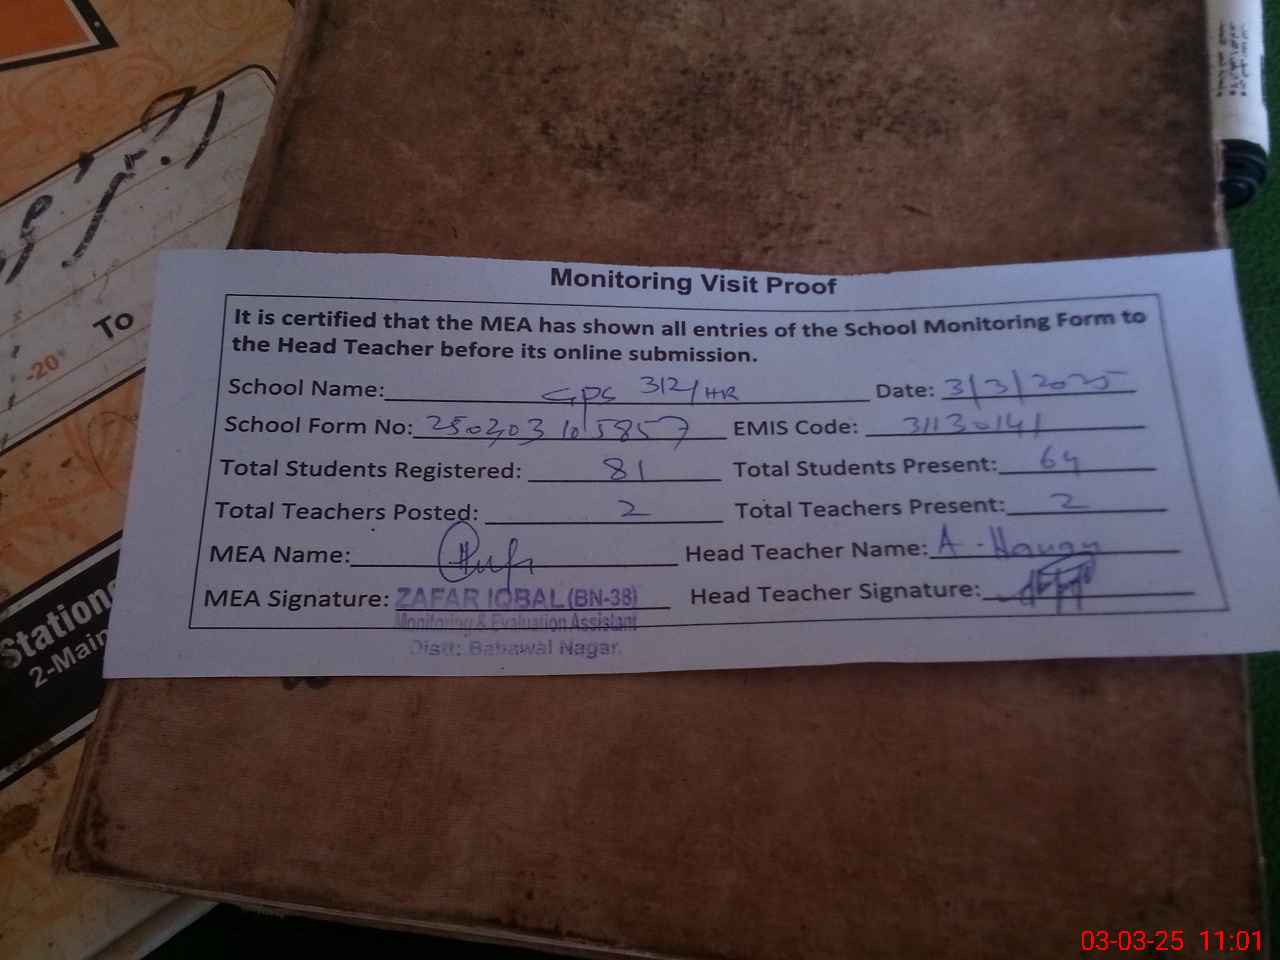 To
-20
Stationer
2-Main
Monitoring Visit Proof
It is certified that the MEA has shown all entries of the School Monitoring Form to
the Head Teacher before its online submission.
School Name: GPS 312/HR Date: 3/3/2025
School Form No: 250303105857 EMIS Code: 31130141
Total Students Registered: 81 Total Students Present: 64
Total Teachers Posted: 2 Total Teachers Present: 2
MEA Name: Head Teacher Name: A.
MEA Signature: ZAFAR IQBAL (BN-38) Head Teacher Signature:
Monitoring & Evaluation Assistant
Distt: Bahawal Nagar.
03-03-25 11:01